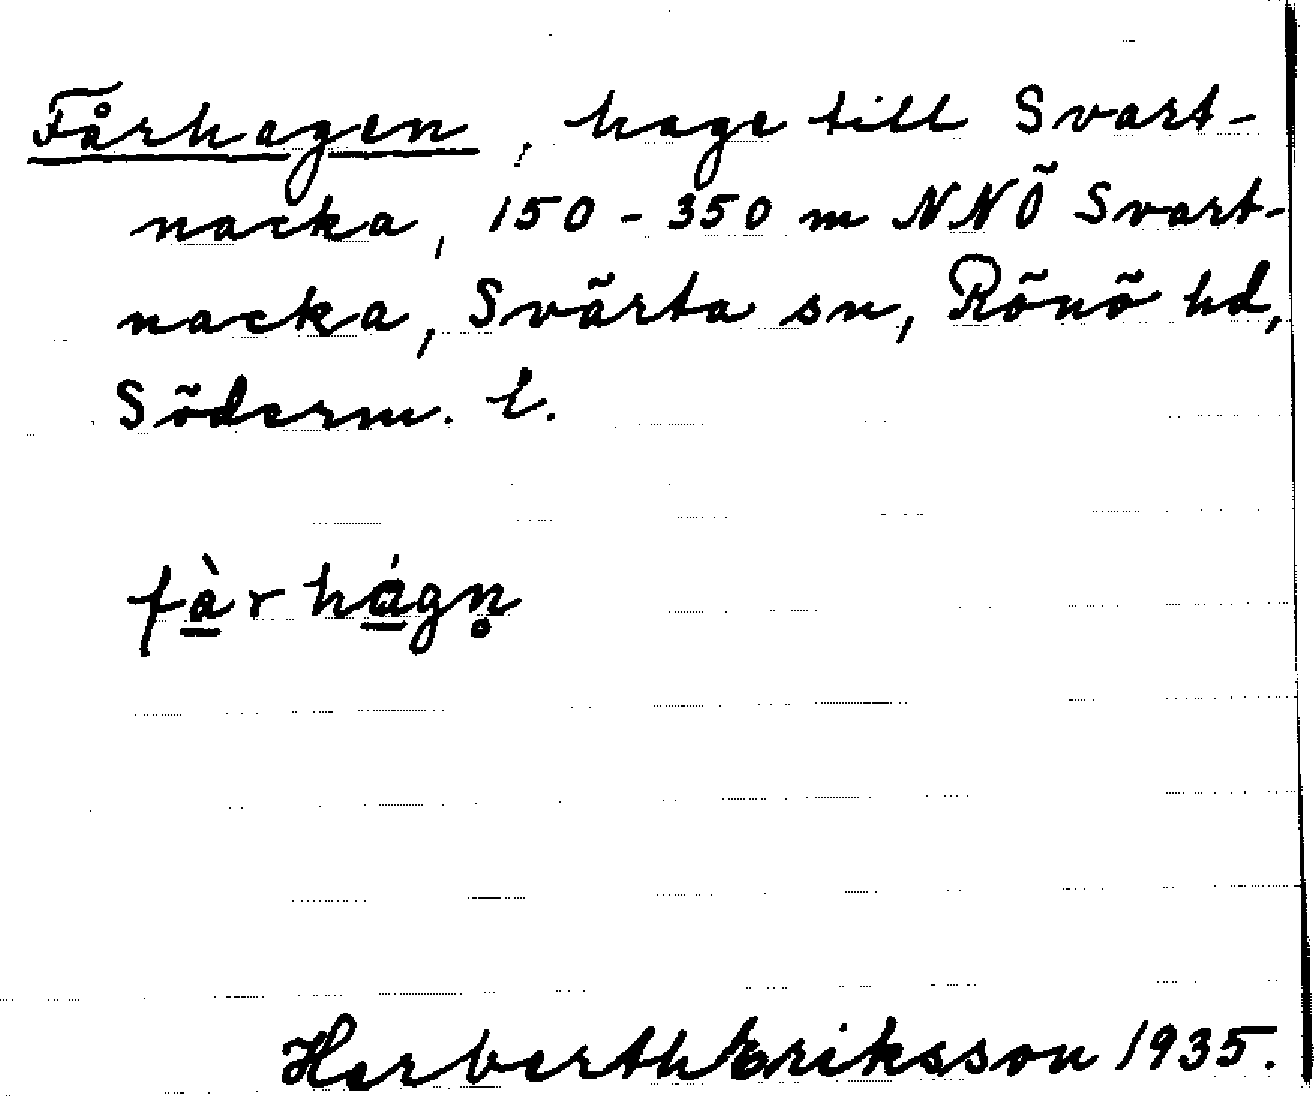 Fårhagen, hage till Svart-
nacka, 150-350 m NNÖ Svart-
nacka, Svärta sn, Rönö hd,
Söderm. l.
fа̱̀r hа̱́gn̥
Herberth Eriksson 1935.